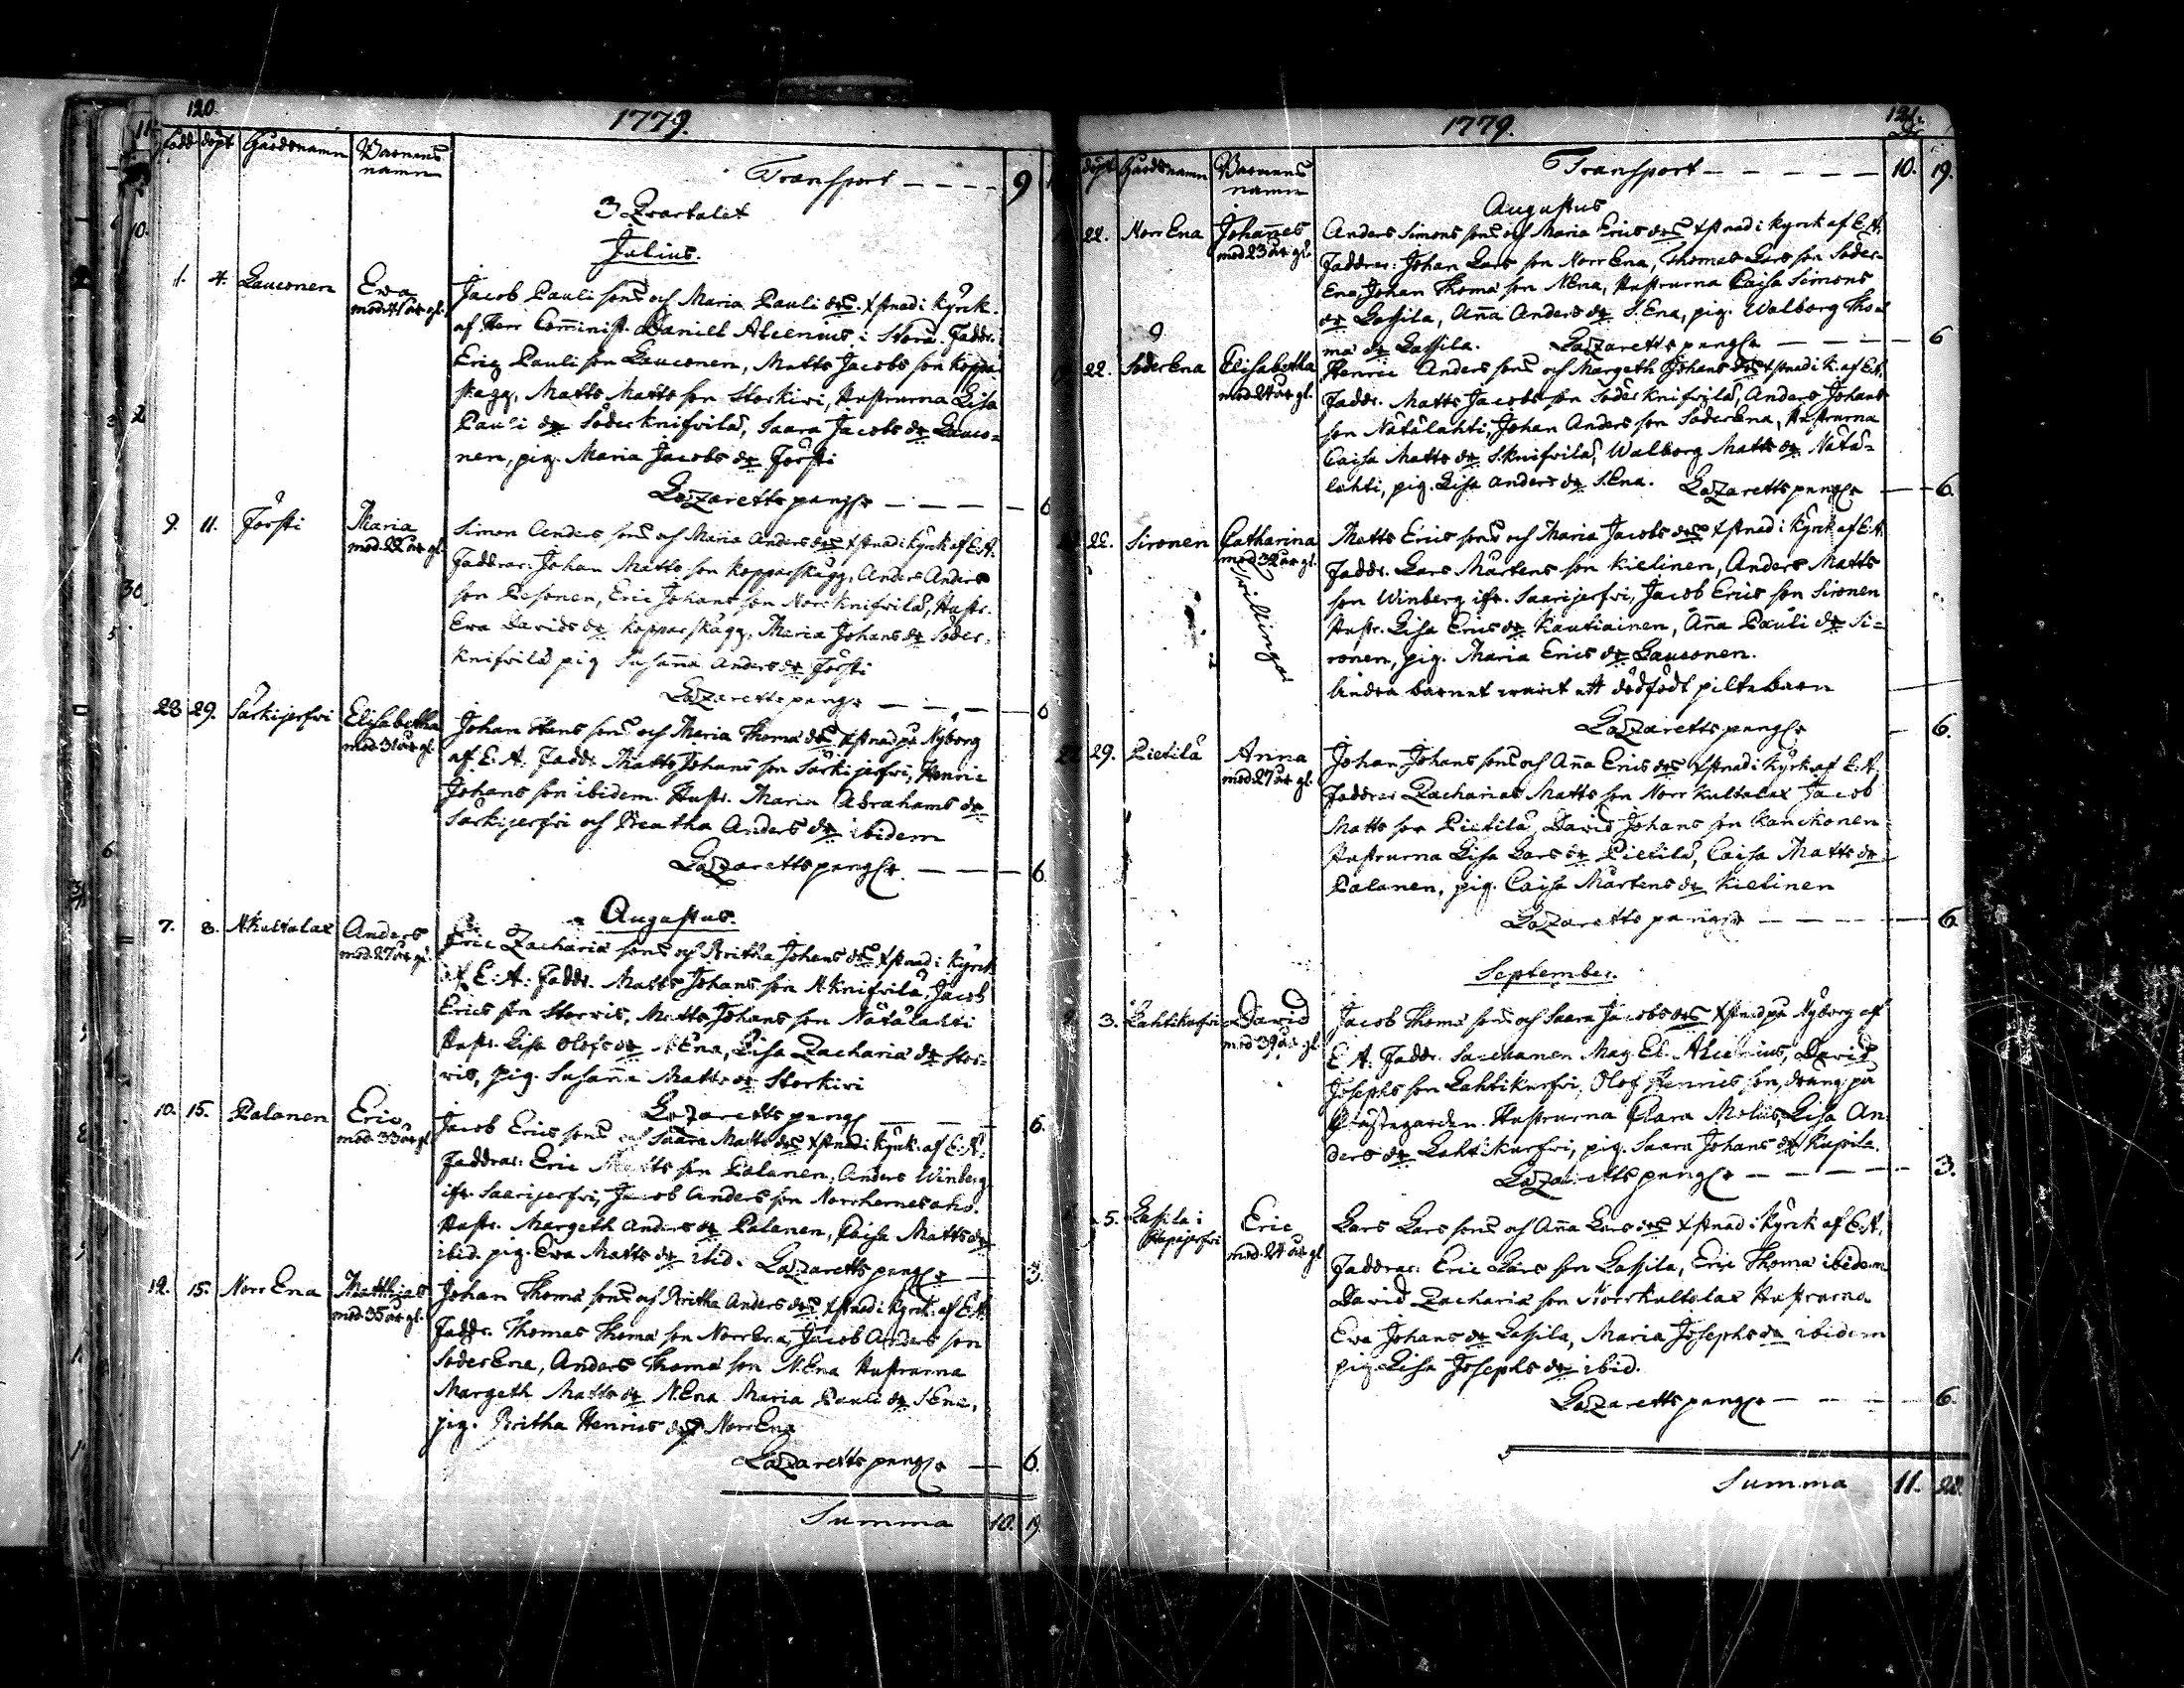 120.
1779.
född döpt Gårdsnamn Barnens namn
Transport - - - - 9
3 Qvartalet
Julius.
1. 4. Lauconen Ewa mod. 41 år gl.
Jacob Pauli sons och Maria Pauli drs. xstnad i Kyrk.
af Herr Comminist. Daniel Alcenius i Storå. Faddr.
Eriq Pauli son Lauconen, Matts Jacobs son Koppar
skägg, Matts Matts son Storkivi, Hustrurna Lisa
Pauli dr Söderknifvilä, Saara Jacobs dr Lauco=
nen, pig. Maria Jacobs dr Försti
Lazarettspengr - - - - 6
9. 11. Försti Maria mod. 22 år gl.
Simon Anders sons och Maria Anders drs xstnad i Kyrk af E.A.
Faddrar: Johan Matts son Kopparskägg, Anders Anders
son Pesonen, Eric Johans son Norrknifvilä, Hustr.
Ewa Davids dr Kopparskägg, Maria Johans dr Söder=
knifvilä pig Susanna Anders dr Försti
Lazarettspengr - - - 6
28 29. Särkijerfvi Elisabetha mod. 31 år gl.
Johan Hans sons och Maria Thoma drs xstnad på Nyborg
af E: A: Faddr Matts Johans son Särkijerfvi, Henric
Johans son ibidem. Hustr. Maria Abrahams dr
Särkijerfvi och Breatha Anders dr ibidem
Lazarettspengr. - - - 6.
Augustus.
7. 8. N.Kultalax Anders mod. 27 år gl.
Eric Zachariæ sons och Britha Johans drs xstnad i Kyrk
af E: A: Faddr. Matts Johans son N.Knifvilä, Jacob
Erics son Storris, Matts Johans son Nätälahti
Hustr. Lisa Olofs dr N.Ena, Lisa Zachariæ dr Stor-
ris, pig. Susanna Matts dr Storkivi
Lazarettspeng - - 6.
10. 15. Palanen Eric mod. 33 år gl.
Jacob Erics sons och Saara Matts drs xstnad i Kyrk. af E: A:
Faddrar: Eric Matts son Palanen, Anders Winberg
ifr. Saarijerfvi, Jacob Anders son Norrhernesaho.
Hustr. Margeth Anders dr Palanen, Caisa Matts dr
ibid. pig. Ewa Matts dr ibid. Lazarettspengr - 3.
12. 15. NorrEna Matthias mod. 35 år gl.
Johan Thomæ sons och Britha Anders drs xstnad i Kyrk. af E.A.
Faddr. Thomas Thomæ son NorrEna, Jacob Anders son
SöderEna, Anders Thomæ son N.Ena Hustrurna
Margeth Matts dr N.Ena Maria Pauli dr S.Ena,
pig. Britha Henrics dr NorrEna
Lazarettspengr - 6.
Summa 10. 19.
121.
1779.
döpt Gårdsnamn Barnens namn
Transport - - - - - 10. 19.
Augustus
22. NorrEna Johannes mod 23 år gl.
Anders Simons sons och Maria Erics drs xstnad i Kyrk af E.A.
Faddrar: Johan Lars son NorrEna, Thomas Lars son Söder-
Ena, Johan Thomæ son N.Ena, Hustrurna Caisa Simons
dr Lassila, Anna Anders dr S.Ena, pig. Walborg Tho-
mæ dr Lassila. Lazarettspengr - - - - 6
22. SöderEna Elisabetha mod. 24 år gl.
Henric Anders sons och Margeth Johans drs xstnad i K. af E.A.
Faddr. Matts Jacobs son Söderknifvilä, Anders Johans
son Nätälahti, Johan Anders son SöderEna, Hustrurna
Caisa Matts dr S.knifvilä, Walborg Matts dr Nätä-
lahti, pig. Lisa Anders dr S.Ena. Lazarettspengr - 6.
22. Sironen Catharina mod 32 år gl.
Tvillingar
Matts Erics sons och Maria Jacobs drs xstnad i Kyrk af E.A.
Faddr. Lars Mårtens son Kielinen, Anders Matts
son Winberg ifr. Saarijerfvi, Jacob Erics son Sironen
Hustr. Lisa Erics dr Kautiainen, Anna Pauli dr Si=
ronen, pig. Maria Erics dr Lauconen.
Andra barnet warit ett dödfödt piltebarn
Lazarettspengr - 6.
29. Pietilä Anna mod. 27 år gl.
Johan Johans sons och Anna Erics drs xstnad i Kyrk. af E: A.
Faddrar Zacharias Matts son Norrkultalax Jacob
Matts son Pietilä, David Johans son Kanckonen
Hustrurna Lisa Lars dr Pietilä, Caisa Matts dr
Palanen, pig. Caisa Mårtens dr Kielinen
Lazarettspengr - - - - 6.
September.
3. Lahtikarfvi David mod 39 år gl.
Jacob Thomæ sons och Saara Jacobs drs xstnad på Nyborg af
E.A: Faddr. Sacellanen Mag. El. Alcenius, David
Josephs son Lahtikarfvi, Olof Henrics son, dräng på
Prästegården. Hustrurna Clara Molins, Lisa An-
ders dr Lahtikarfvi, pig. Saara Johans dr Kapila.
Lazarettspengr - - - - 3.
5. Lassila i Eric mod. 24 år gl.
Lars Lars sons och Anna Lars drs xstnad i Kyrk af E.A.
Faddrar: Eric Lars son Lassila, Eric Thomæ ibidem
David Zachariæ son Norrkultalax Hustrurna
Ewa Johans dr Lassila, Maria Josephs dr ibidem
pig Lisa Josephs dr ibid.
Lazarettspengr - - - - 6.
Summa 11. 28.